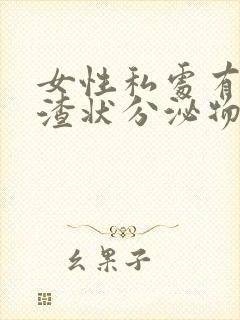 女性私處有
渣状分泌物
幺果子